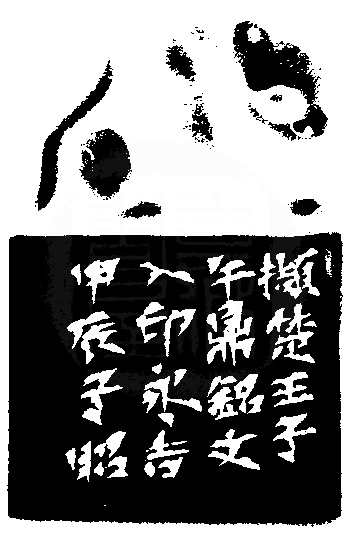 擷楚王子
午鼎銘文
入印永吉
甲辰子昭